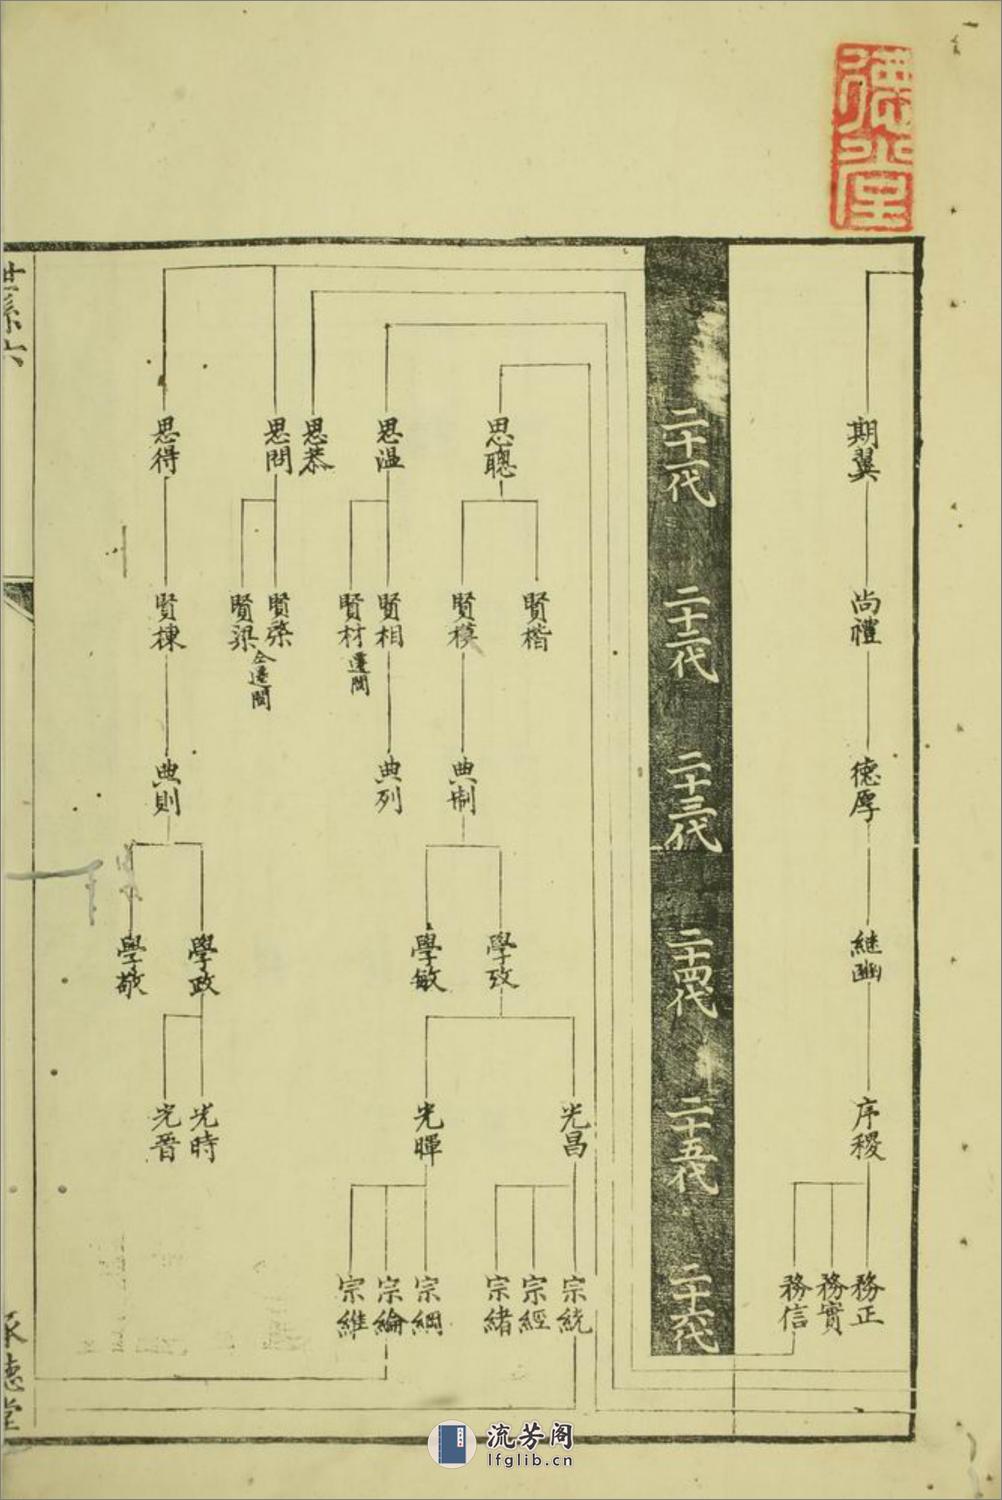 德光堂
期翼
尚禮
德厚
繼幽
序稷
務正
務實
務信
二十一代
二十二代
二十三代
二十四代
二十五代
二十六代
思聰
賢楷
賢模
典制
學孜
學敏
光昌
光暉
宗統
宗經
宗緒
宗綱
宗綸
宗維
思溫
賢相
賢材遷閩
典列
思恭
思問
賢梁仝遷閩
思得
賢棟
典則
學政
學敬
光時
光晉
世系六
承德堂
流芳阁
lfglib.cn